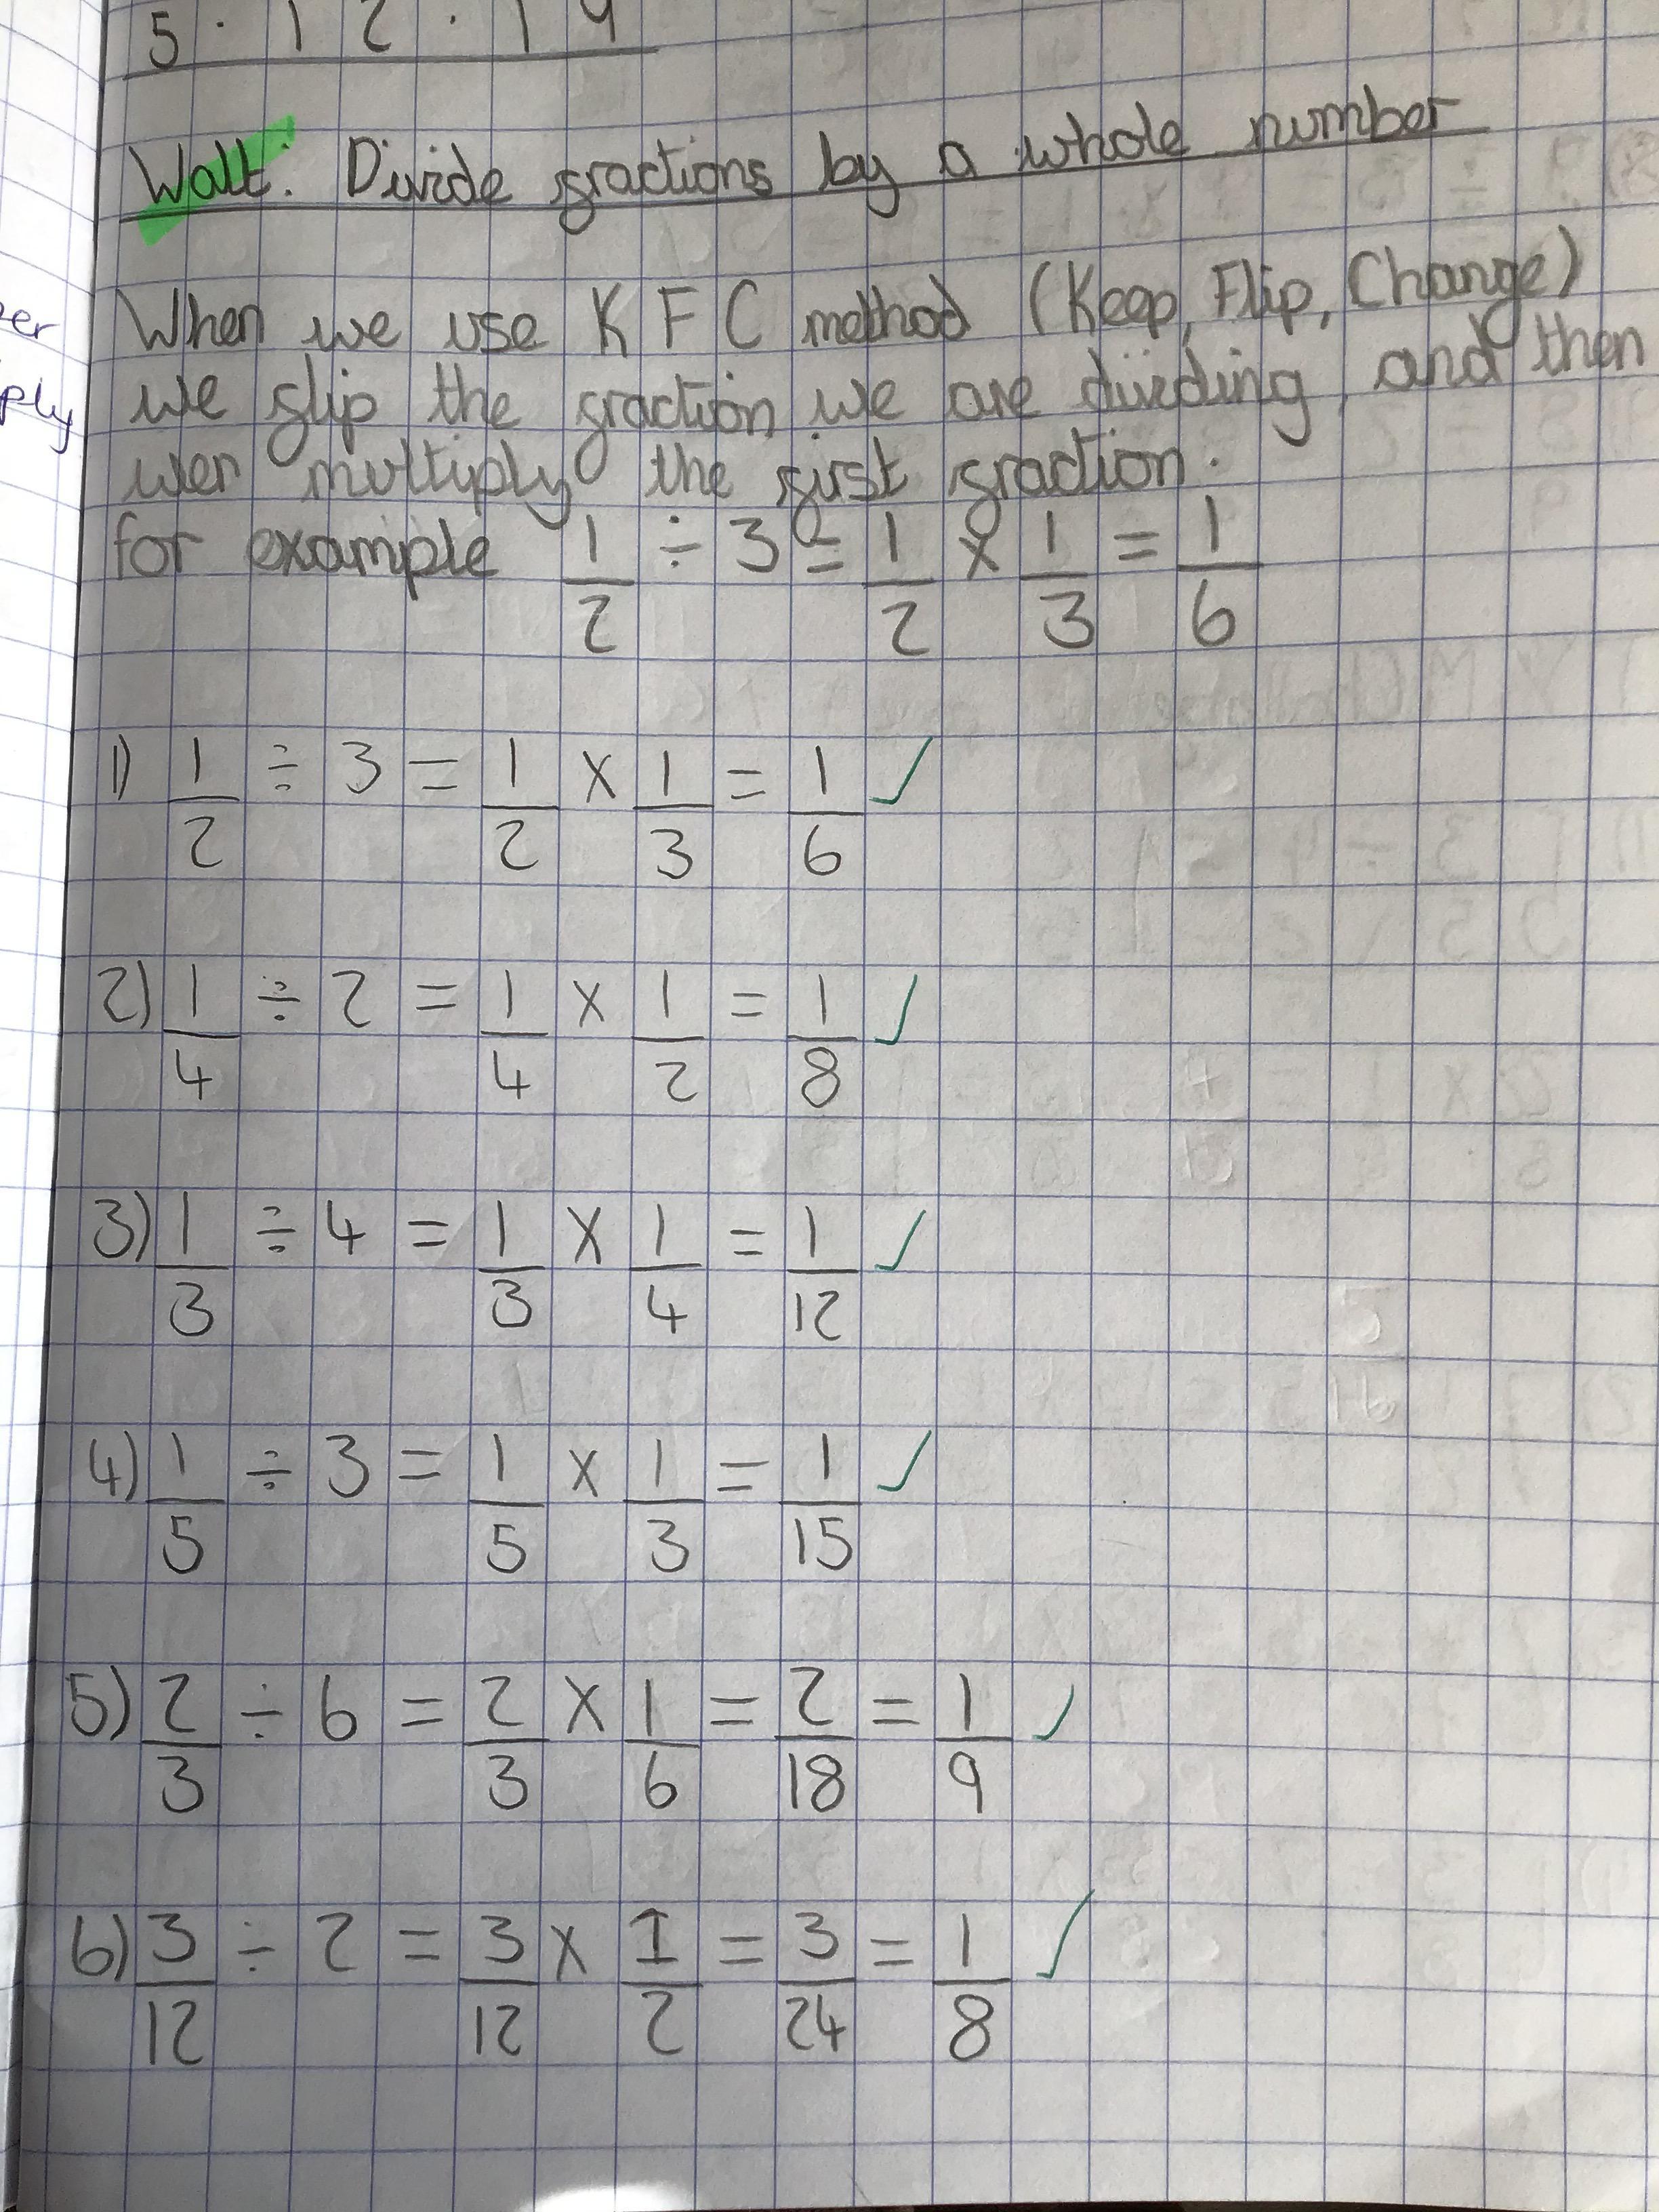 5.12.19
Walt: Divide fractions by a whole number
When we use K F C method (Keep, Flip, Change)
we flip the fraction we are dividing, and then
wer multiply the first fraction.
for example 1/2 ÷ 3 = 1/2 x 1/3 = 1/6
1) 1/2 ÷ 3 = 1/2 x 1/3 = 1/6 ✓
2) 1/4 ÷ 2 = 1/4 x 1/2 = 1/8 ✓
3) 1/3 ÷ 4 = 1/3 x 1/4 = 1/12 ✓
4) 1/5 ÷ 3 = 1/5 x 1/3 = 1/15 ✓
5) 2/3 ÷ 6 = 2/3 x 1/6 = 2/18 = 1/9 ✓
6) 3/12 ÷ 2 = 3/12 x 1/2 = 3/24 = 1/8 ✓